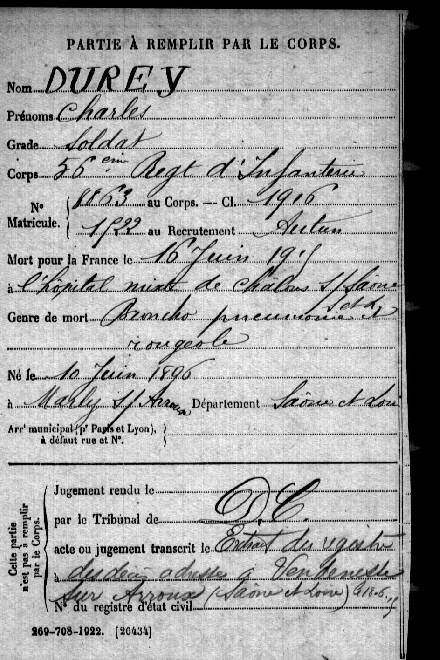 PARTIE À REMPLIR PAR LE CORPS.
Nom DUREY
Prénoms Charles
Grade Soldat
Corps 56eme Regt d'Infanterie
N° Matricule. 8863 au Corps. — Cl. 1916
1522 au Recrutement Autun
Mort pour la France le 16 Juin 1915
à l'hôpital mixte de Chalons s/ Saône
S et L
Genre de mort Broncho pneumonie de
rougeole
Né le 10 Juin 1896
à Marly s/ Arroux Département Saône et Loire
Arrt municipal (pr Paris et Lyon),
à défaut rue et N°.
Cette partie n'est pas à remplir par le Corps.
Jugement rendu le
par le Tribunal de D.C.
acte ou jugement transcrit le Extrait du registre
des à Vendenesse
sur Arroux (Saône et Loire)
N° du registre d'état civil
269-708-1922. [26434]